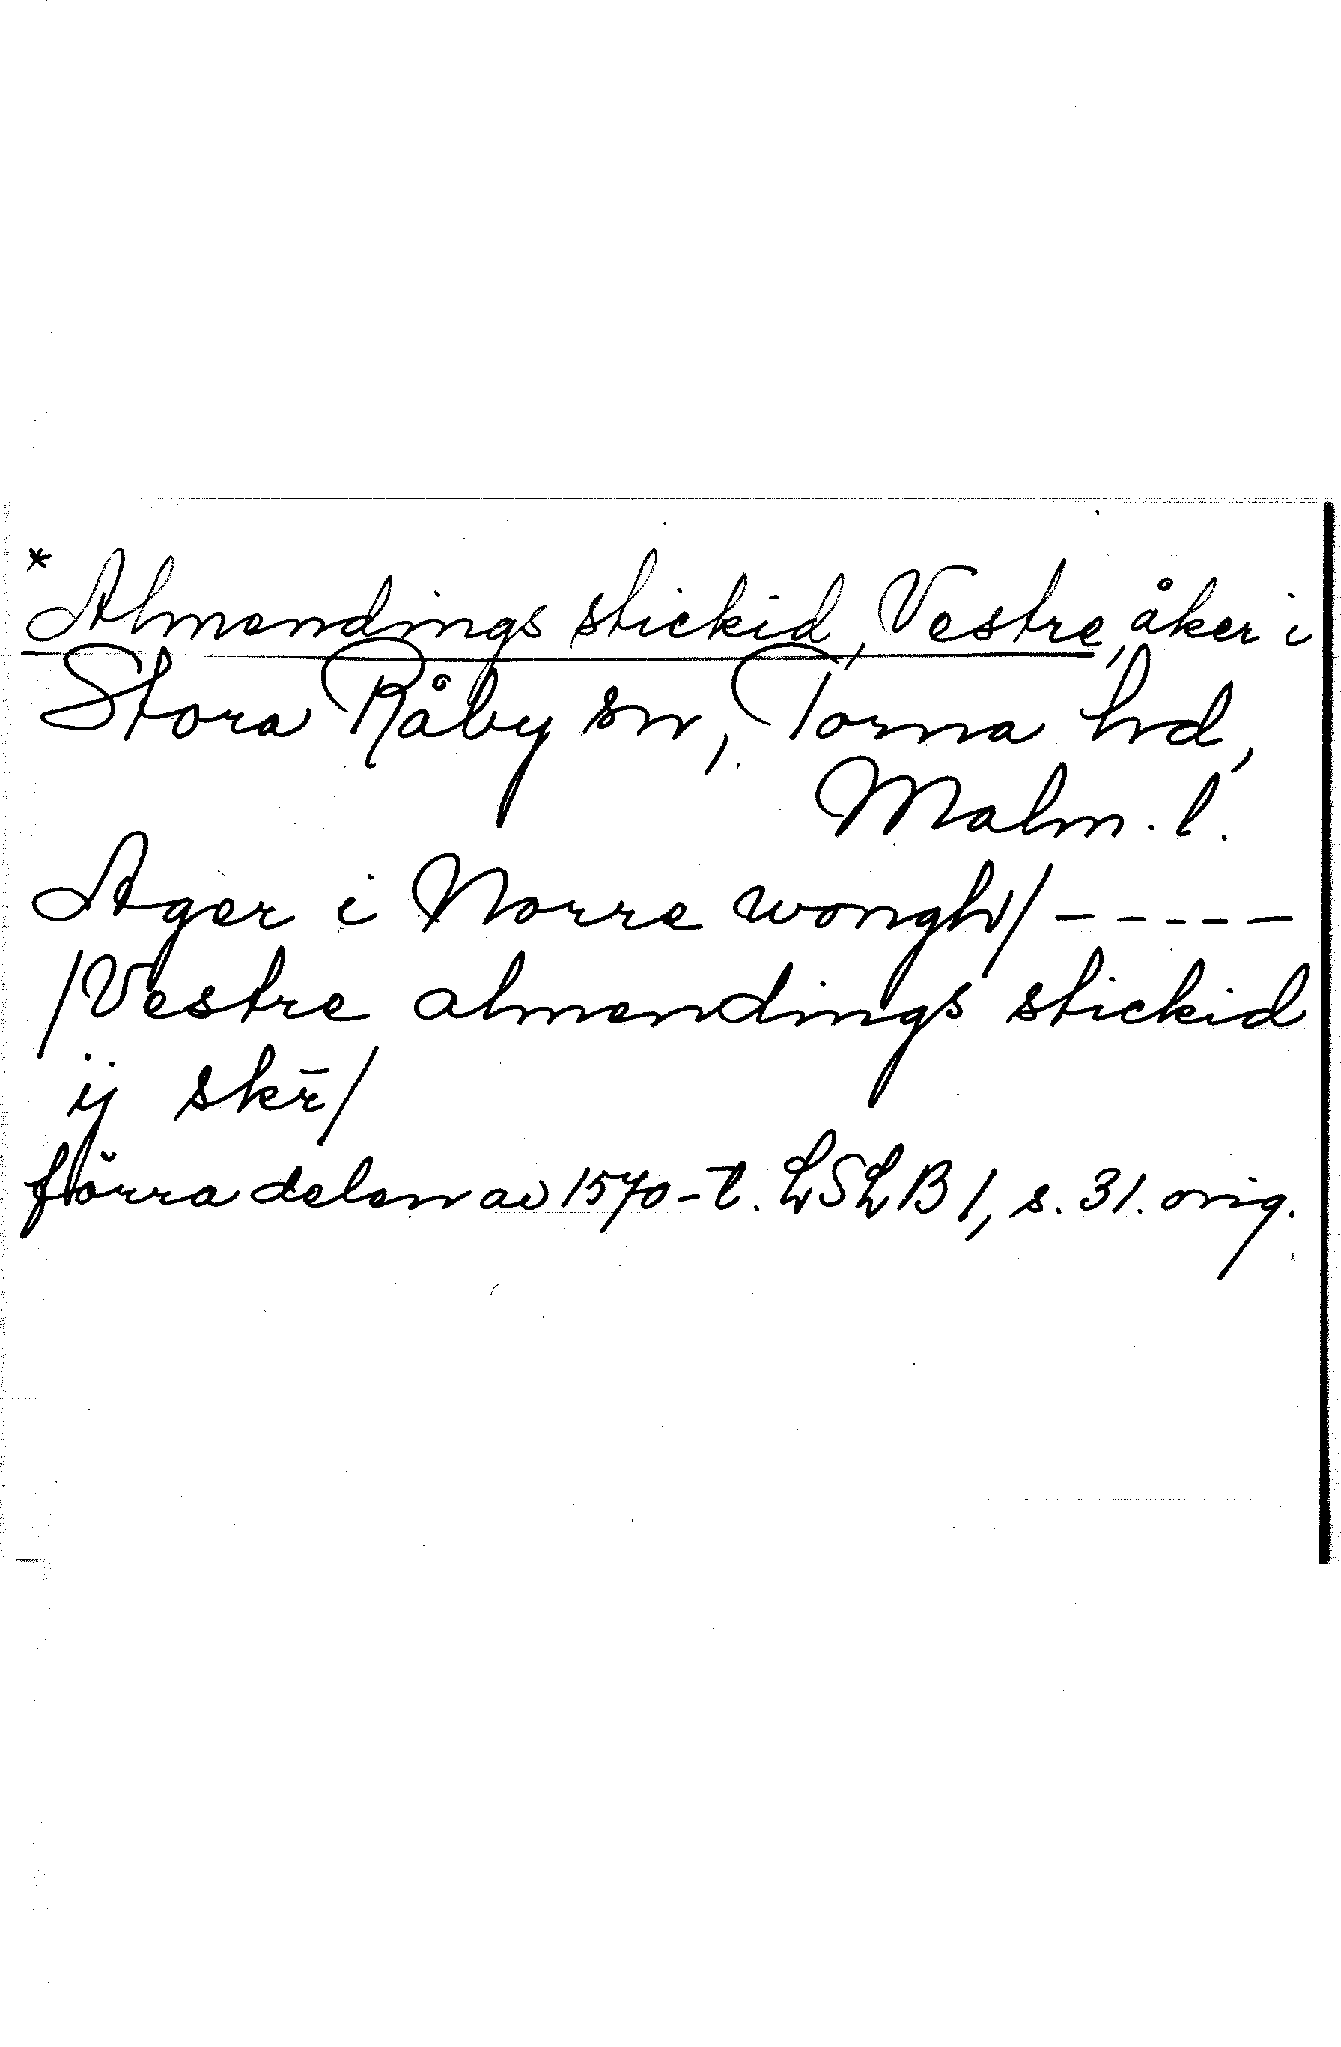 *Almendings stickid, Vestre, åker i
Stora Råby sn, Torna hd,
Malm. l.
Ager i Norre wongh/ - - - - -
/Vestre almendings stickid
ij skr̄/
förra delen av 1570-t. LSLB 1, s. 31. orig.